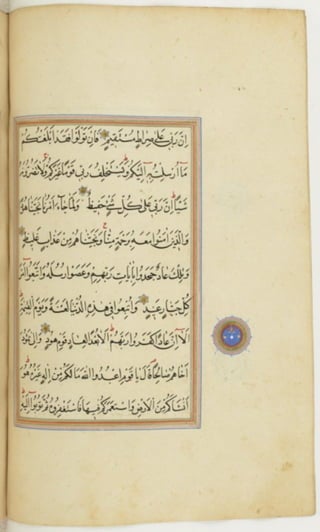 اِنَّ رَبّى عَلى صِراطٍ مُسْتَقيمٍ فَاِنْ تَوَلَّوْا فَقَدْ اَبْلَغْتُكُمْ
مَا اُرْسِلْتُ بِهِ اِلَيْكُمْ وَيَسْتَخْلِفُ رَبّى قَوْمًا غَيْرَكُمْ وَلَا تَضُرُّونَهُ
شَيْئًا اِنَّ رَبّى عَلى كُلِّ شَىْءٍ حَفيظٌ وَلَمَّا جَاءَ اَمْرُنَا نَجَّيْنَا هُودًا
وَالَّذينَ اٰمَنُوا مَعَهُ بِرَحْمَةٍ مِنَّا وَنَجَّيْنَاهُمْ مِنْ عَذَابٍ غَليظٍ
وَتِلْكَ عَادٌ جَحَدُوا بِاٰيَاتِ رَبِّهِمْ وَعَصَوْا رُسُلَهُ وَاتَّبَعُوا اَمْرَ
كُلِّ جَبَّارٍ عَنيدٍ وَاُتْبِعُوا فى هٰذِهِ الدُّنْيَا لَعْنَةً وَيَوْمَ الْقِيٰمَةِ
اَلَا اِنَّ عَادًا كَفَرُوا رَبَّهُمْ اَلَا بُعْدًا لِعَادٍ قَوْمِ هُودٍ وَاِلى ثَمُودَ
اَخَاهُمْ صَالِحًا قَالَ يَا قَوْمِ اعْبُدُوا اللّٰهَ مَا لَكُمْ مِنْ اِلٰهٍ غَيْرُهُ هُوَ
اَنْشَاَكُمْ مِنَ الْاَرْضِ وَاسْتَعْمَرَكُمْ فيهَا فَاسْتَغْفِرُوهُ ثُمَّ تُوبُوا اِلَيْهِ